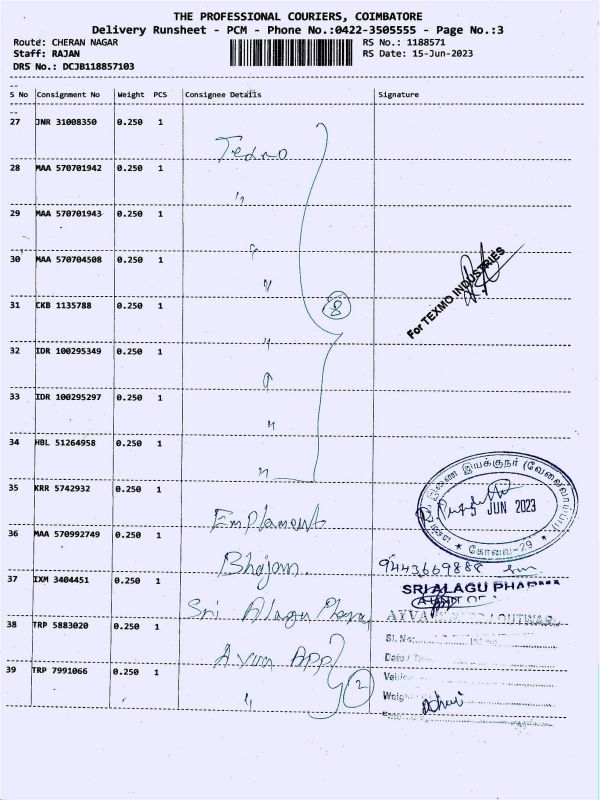 THE PROFESSIONAL COURIERS, COIMBATORE
Delivery Runsheet - PCM - Phone No.:0422-3505555 - Page No.:3
Route: CHERAN NAGAR RS No.: 1188571
Staff: RAJAN RS Date: 15-Jun-2023
DRS No.: DCJB118857103
S No Consignment No Weight PCS Consignee Details Signature
27 JNR 31008350 0.250 1
28 MAA 570701942 0.250 1 "
29 MAA 570701943 0.250 1 "
30 MAA 570704508 0.250 1 "
For TEXMO INDUSTRIES
31 CKB 1135788 0.250 1 8
32 IDR 100295349 0.250 1 "
33 IDR 100295297 0.250 1 "
34 HBL 51264958 0.250 1 "
இணை இயக்குநர் (வேலைவாய்ப்பு)
35 KRR 5742932 0.250 1 Emplament
15 JUN 2023
கோவை-29
36 MAA 570992749 0.250 1 Bhajan 9443669888
37 IXM 3404451 0.250 1 Sri Alagu Pharma
SRI ALAGU PHARMA
38 TRP 5883020 0.250 1 Ayva App
Sl. No:
39 TRP 7991066 0.250 1 " 2